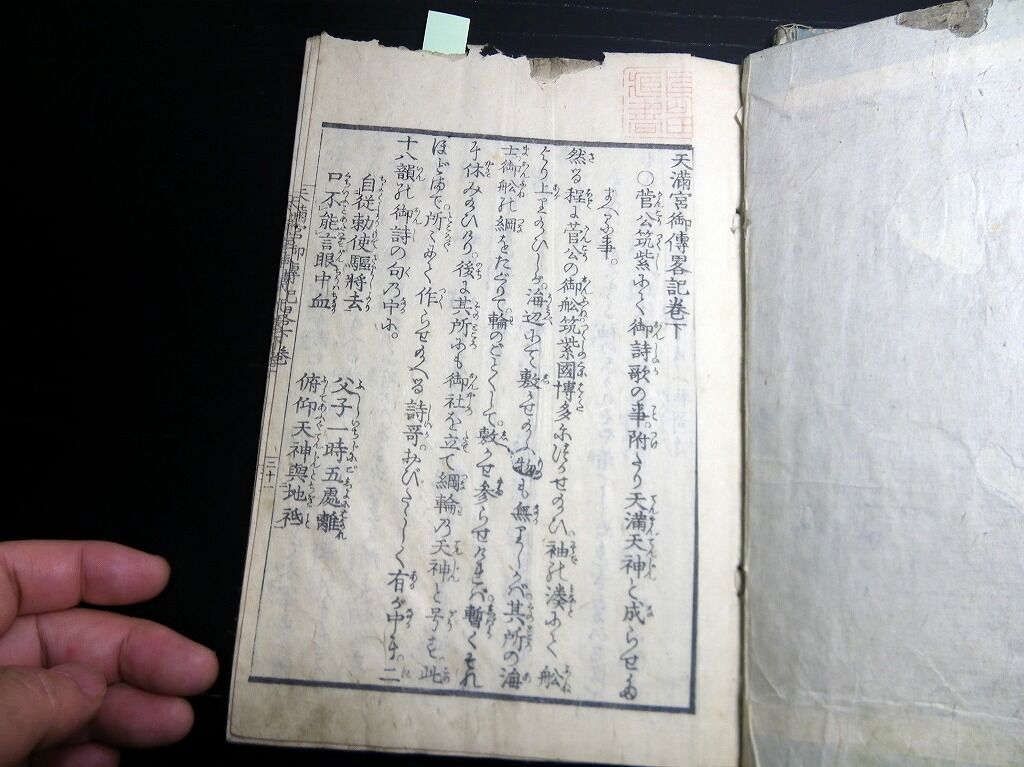 天満宮御傳畧記巻下
〇菅公筑紫にて御詩歌の事附たり天満天神と成らせ給
ふ事。
然る程に菅公の御舩筑紫國博多に
せ給ひ袖の湊にて舩
より上り給ひしが海辺にて敷かせ給ふ物も無りしかバ其所の海
士御舩の綱をたぐりて輪のごとくして敷かせ参らせ
バ暫く
休み給ひけり。後に其所にも御社を立て綱輪乃天神と号す此
ほど
所にて作らせ給へる詩哥おびたゞしく有が中に二
十八韻の御詩の句乃中に。
自從勅使驅將去
父子一時五處離
口不能言眼中血
俯仰天神與地祇
三十一